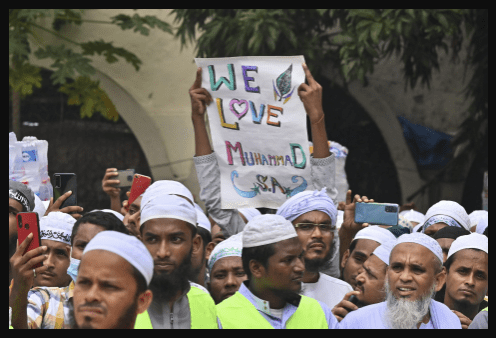 WE
LOVE
MUHAMMAD
(S.A.)